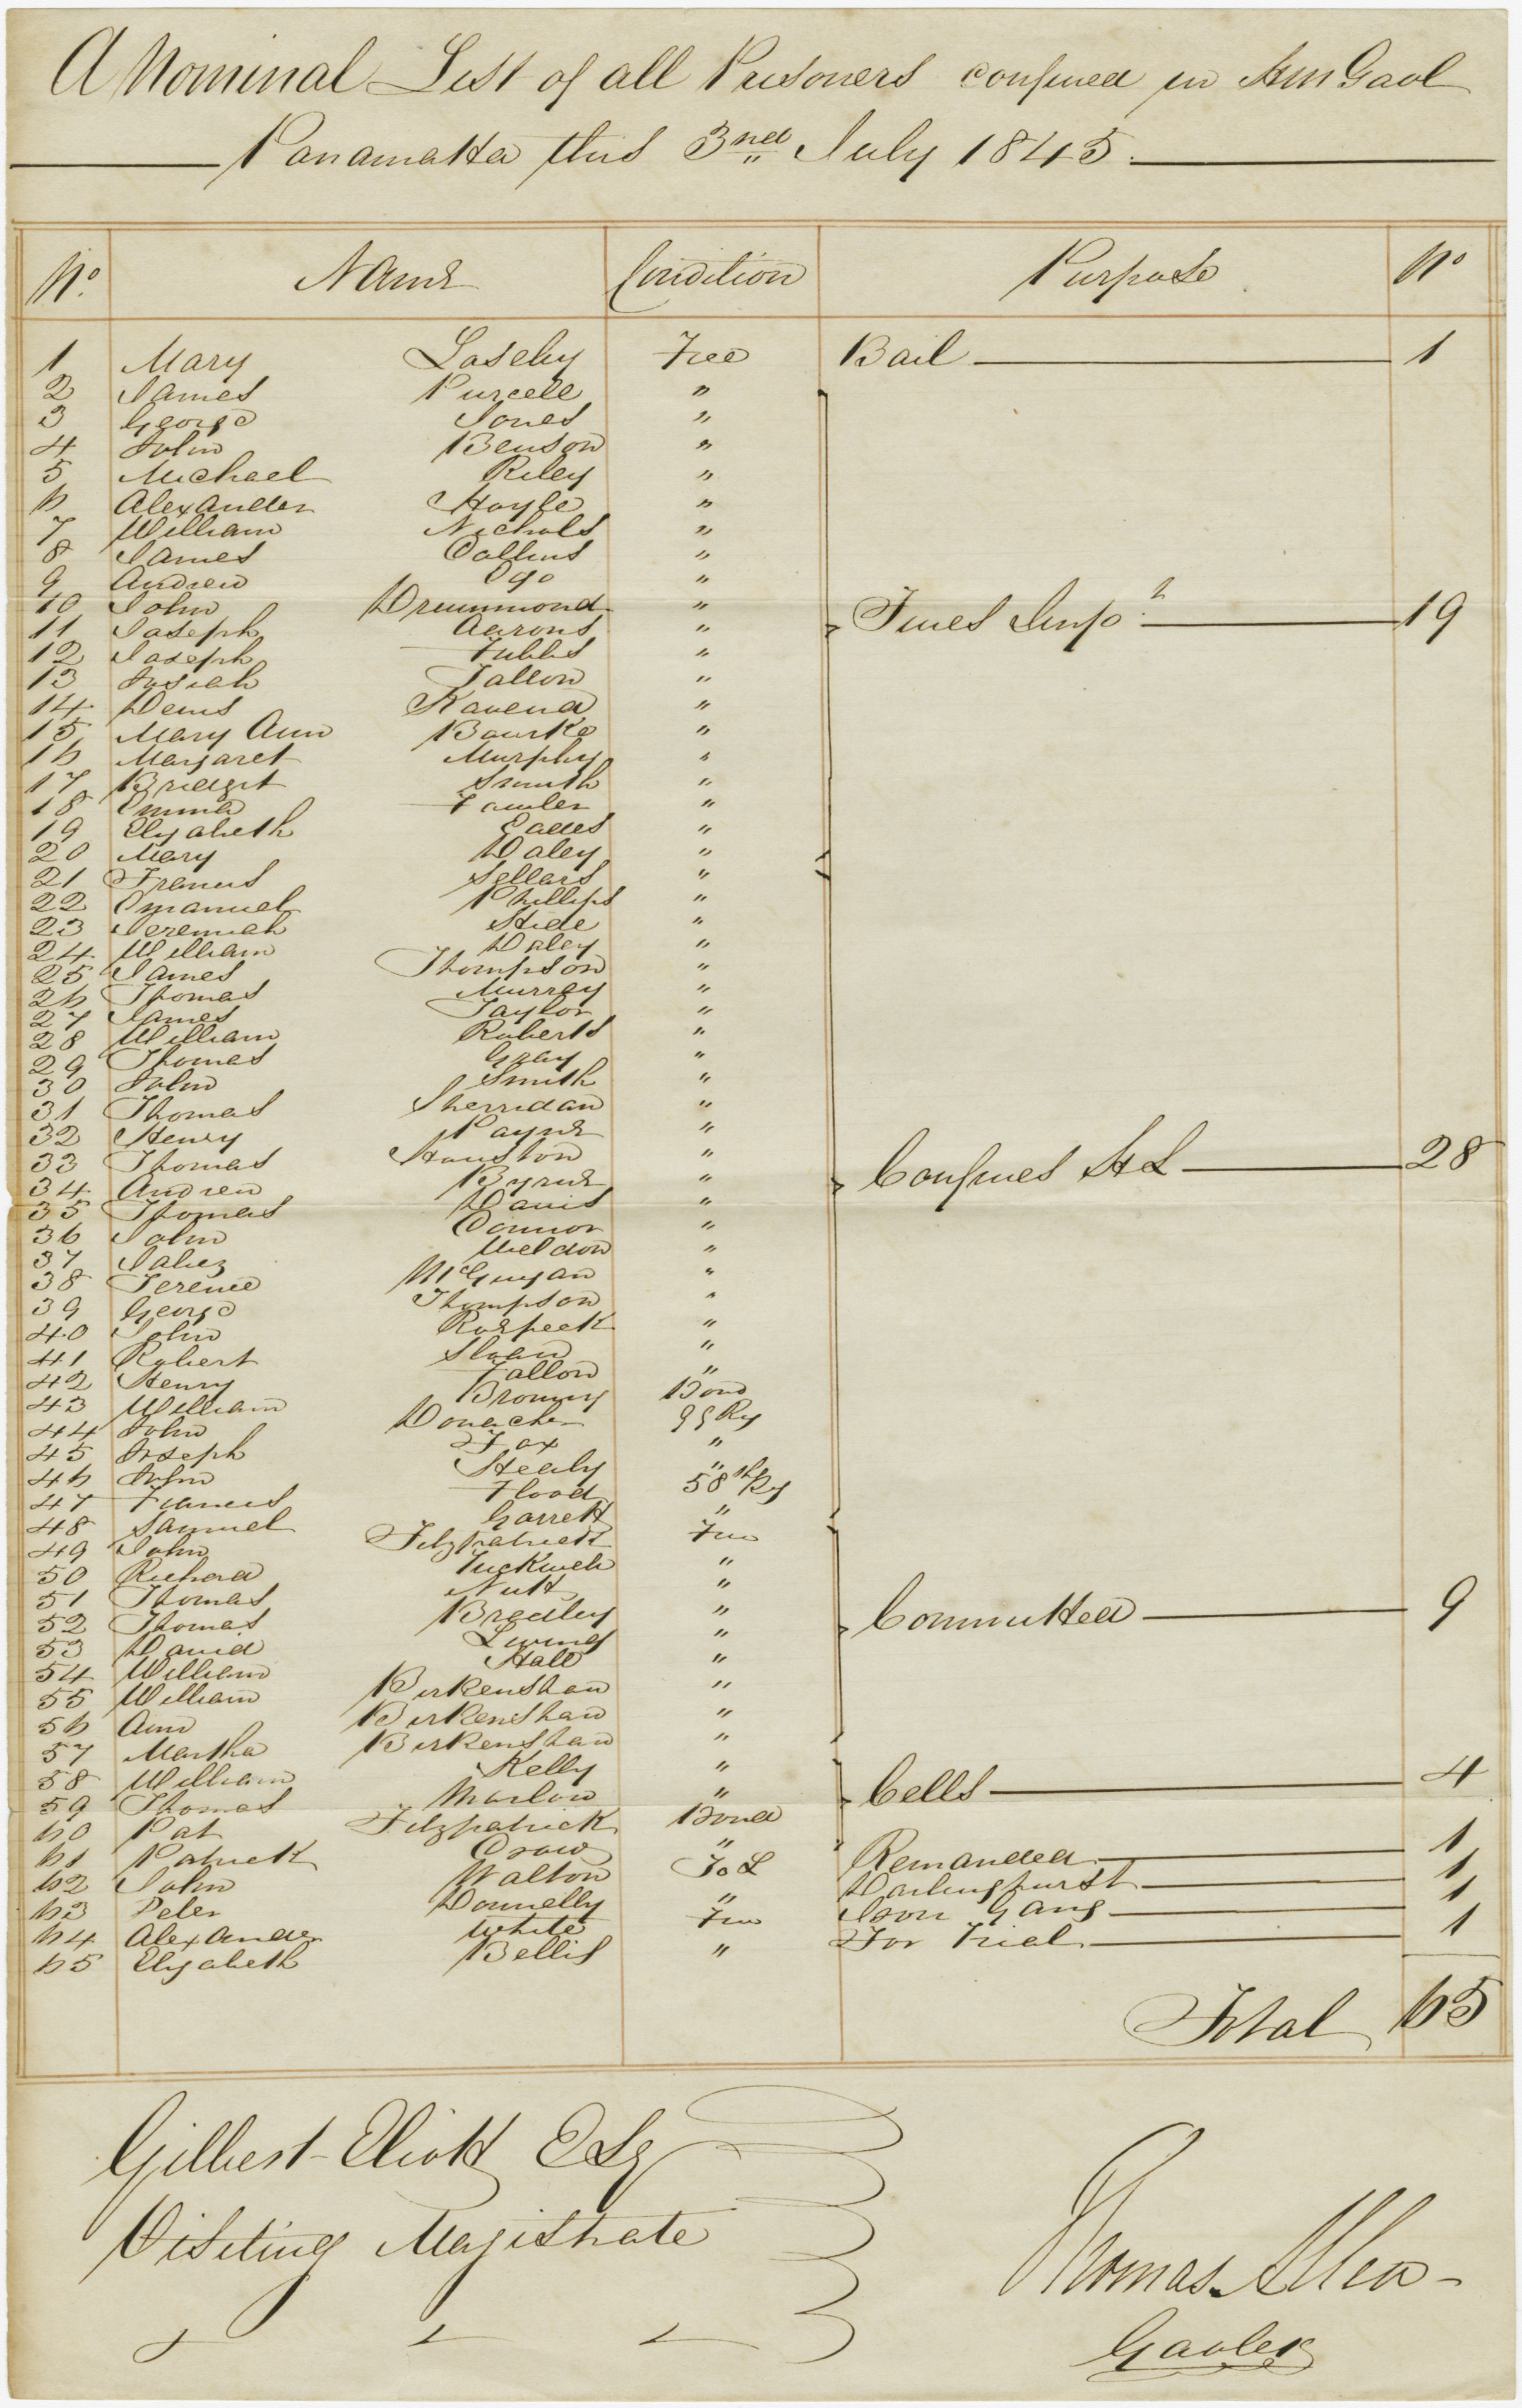 A Nominal List of all Prisoners confined in HM Gaol
Parramatta this 3nd July 1845
No. Name Condition Purpose No
1 Mary Laseby Free Bail 1
2 James Purcell "
3 George Jones "
4 John Benson "
5 Michael Riley "
6 Alexander Hoyle "
7 William Nichols "
8 James Collins "
9 Andrew Ogo "
10 John Drummond "
11 Joseph Aarons " Fines Imp.t 19
12 Joseph Tubbs "
13 Josiah Tallon "
14 Denis Kavena "
15 Mary Ann Bourke "
16 Margaret Murphy "
17 Bridget Smith "
18 Emma Fowler "
19 Elizabeth Eades "
20 Mary Daley "
21 Francis Sellars "
22 Emanuel Phillips "
23 Jeremiah Hide "
24 William Daley "
25 James Thompson "
26 Thomas Murray "
27 James Taylor "
28 William Roberts "
29 Thomas Gray "
30 John Smith "
31 Thomas Sherridan "
32 Henry Payne "
33 Thomas Houston " Confines HL 28
34 Andrew Byrne "
35 Thomas Davis "
36 John Connor "
37 Jabez Weldon "
38 Terence McGuigan "
39 George Thompson "
40 John Rospeek "
41 Robert Sloan "
42 Henry Fallon "
43 William Bromny Bond
44 John Donacher 99 Rg
45 Joseph Fox "
46 John Healy "
47 Francis Flood 58th Rg
48 Samuel Garrett "
49 John Fitzpatrick Free
50 Richard Tuckwell "
51 Thomas Nutt "
52 Thomas Bradley " Committed 9
53 David Living "
54 William Hall "
55 William Birkenshaw "
56 Ann Birkenshaw "
57 Martha Birkenshaw "
58 William Kelly "
59 Thomas Marlow " Cells 4
60 Pat Fitzpatrick Bond
61 Patrick Crow "
62 John Walton To L Remanded 1
63 Peter Donnelly " Darlinghurst 1
64 Alexander White Free Iron Gang 1
65 Elizabeth Bellis " For Trial 1
Total 65
Gilbert Eliott Esq
Visiting Magistrate
Thomas Allen
Gaoler